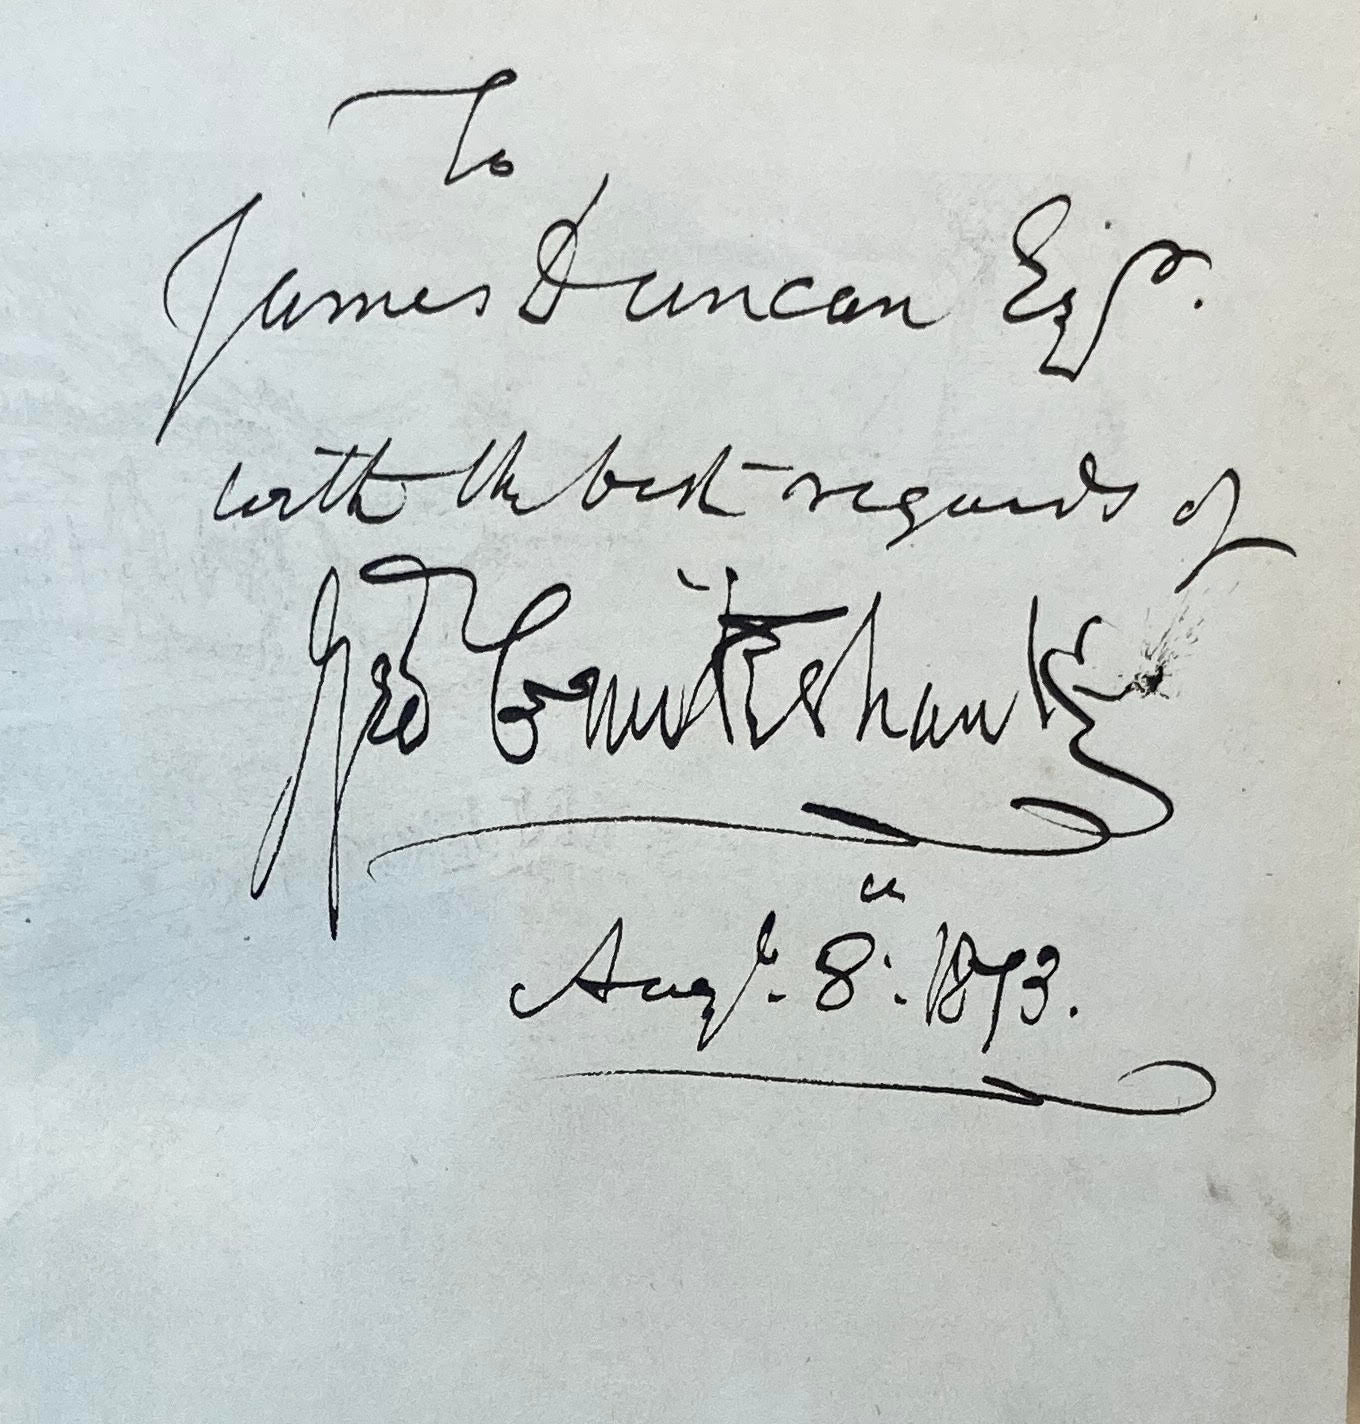 To
James Duncan Esqr.
with the best regards of
Geo Cruikshank
Augt. 8th. 1873.